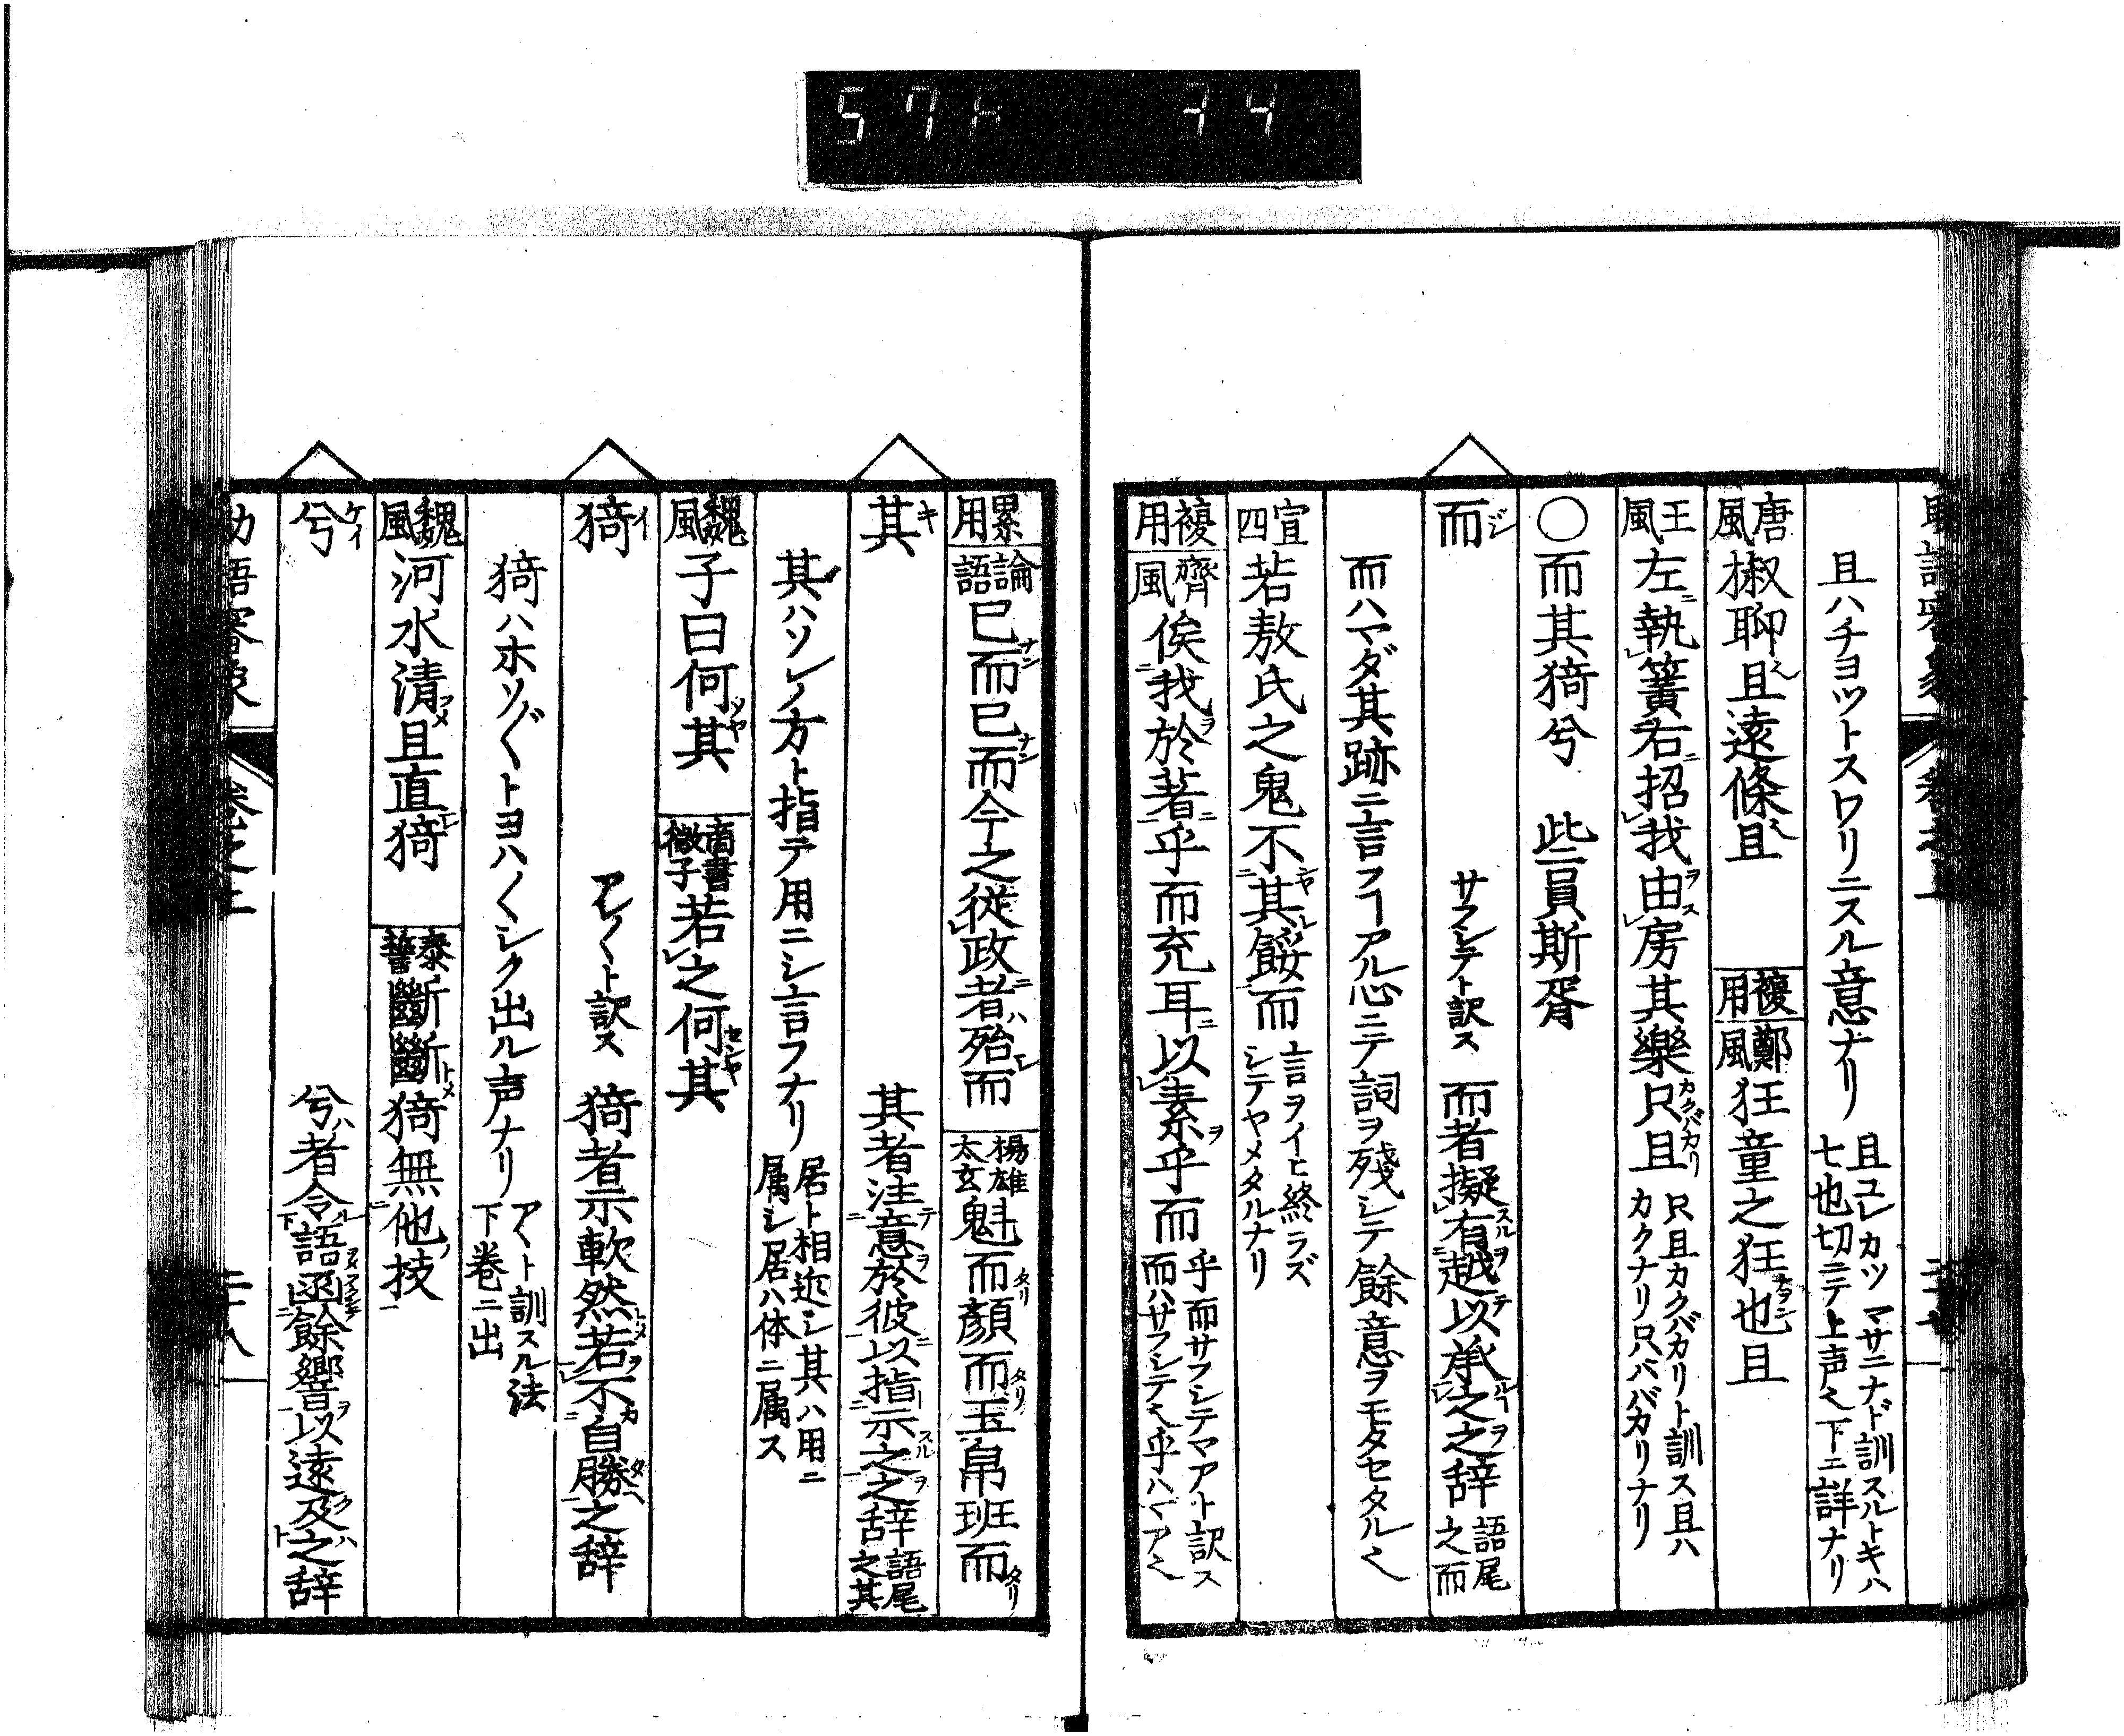 且ハチヨツトスワリニスル意ナリ 且ユレカツマサニナド訓スルトキハ
七也切ニテ上声也下ニ詳ナリ
唐風 椒聊且遠條且 複用 鄭風 狂童之狂也且
王風 左執簧右招我由房其樂只且 只且カクバカリト訓ス且ハ
カクナリ只ハバカリナリ
〇而其猗兮 些員斯胥
而 サフシテト訳ス 而者擬有越以承之之辞 語尾之而
而ハマダ其跡ニ言フ﹁アル心ニテ詞ヲ殘シテ餘意ヲモタセタル也
宣四 若敖氏之鬼不其餒而 言ヲイヒ終ラズ
シテヤメタルナリ
複用 齊風 俟我於著乎而充耳以素乎而 乎而サフシテマアト訳ス
而ハサフシテ也乎ハマア也
累用 論語 已而已而今之從政者殆而 楊雄太玄 魁而顏而玉帛班而
其 其者注意於彼以指示之之辞 語尾之其
其ハソレノ方ト指テ用ニシ言フナリ 居ト相近シ其ハ用ニ
属シ居ハ体ニ属ス
魏風 子曰何其 商書微子 若之何其
猗 アレ〱ト訳ス 猗者示軟然若不自勝之辞
猗ハホソ〲トヨハ〱シク出ル声ナリ アヽト訓スル法
下巻ニ出
魏風 河水清且直猗 泰誓 斷斷猗無他技
兮 兮者令語函餘響以遠及之辞